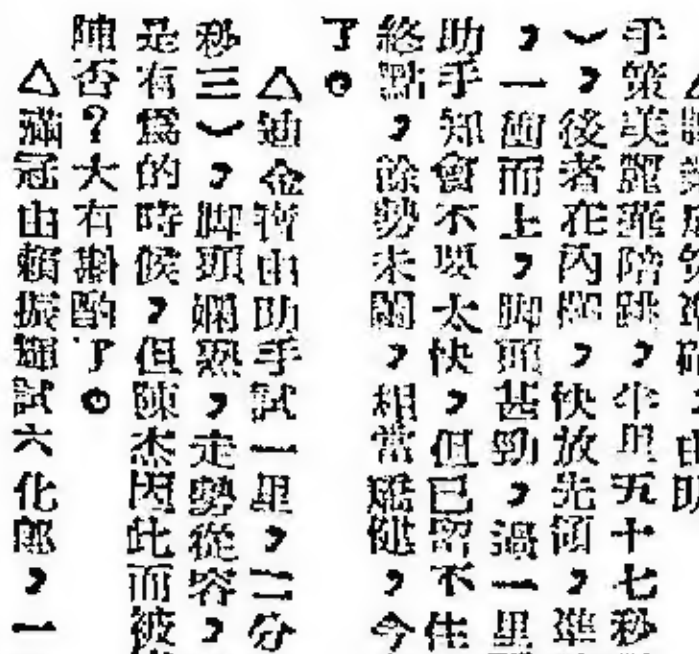 由助
手策美麗華陪跳，半里五十七秒
），後者在內欄，快放先領，準
，一衝而上，脚頭甚勁，過一里
助手知會不要太快，但已留不住
終點，餘勢未闌，相當矯健，今
了。
△迪金寶由助手試一里，二分
秒三），脚頭嫻熟，走勢從容，
是有爲的時候，但陳杰因此而被
陣否？大有斟酌了。
△滿冠由賴振輝試六化郎，一